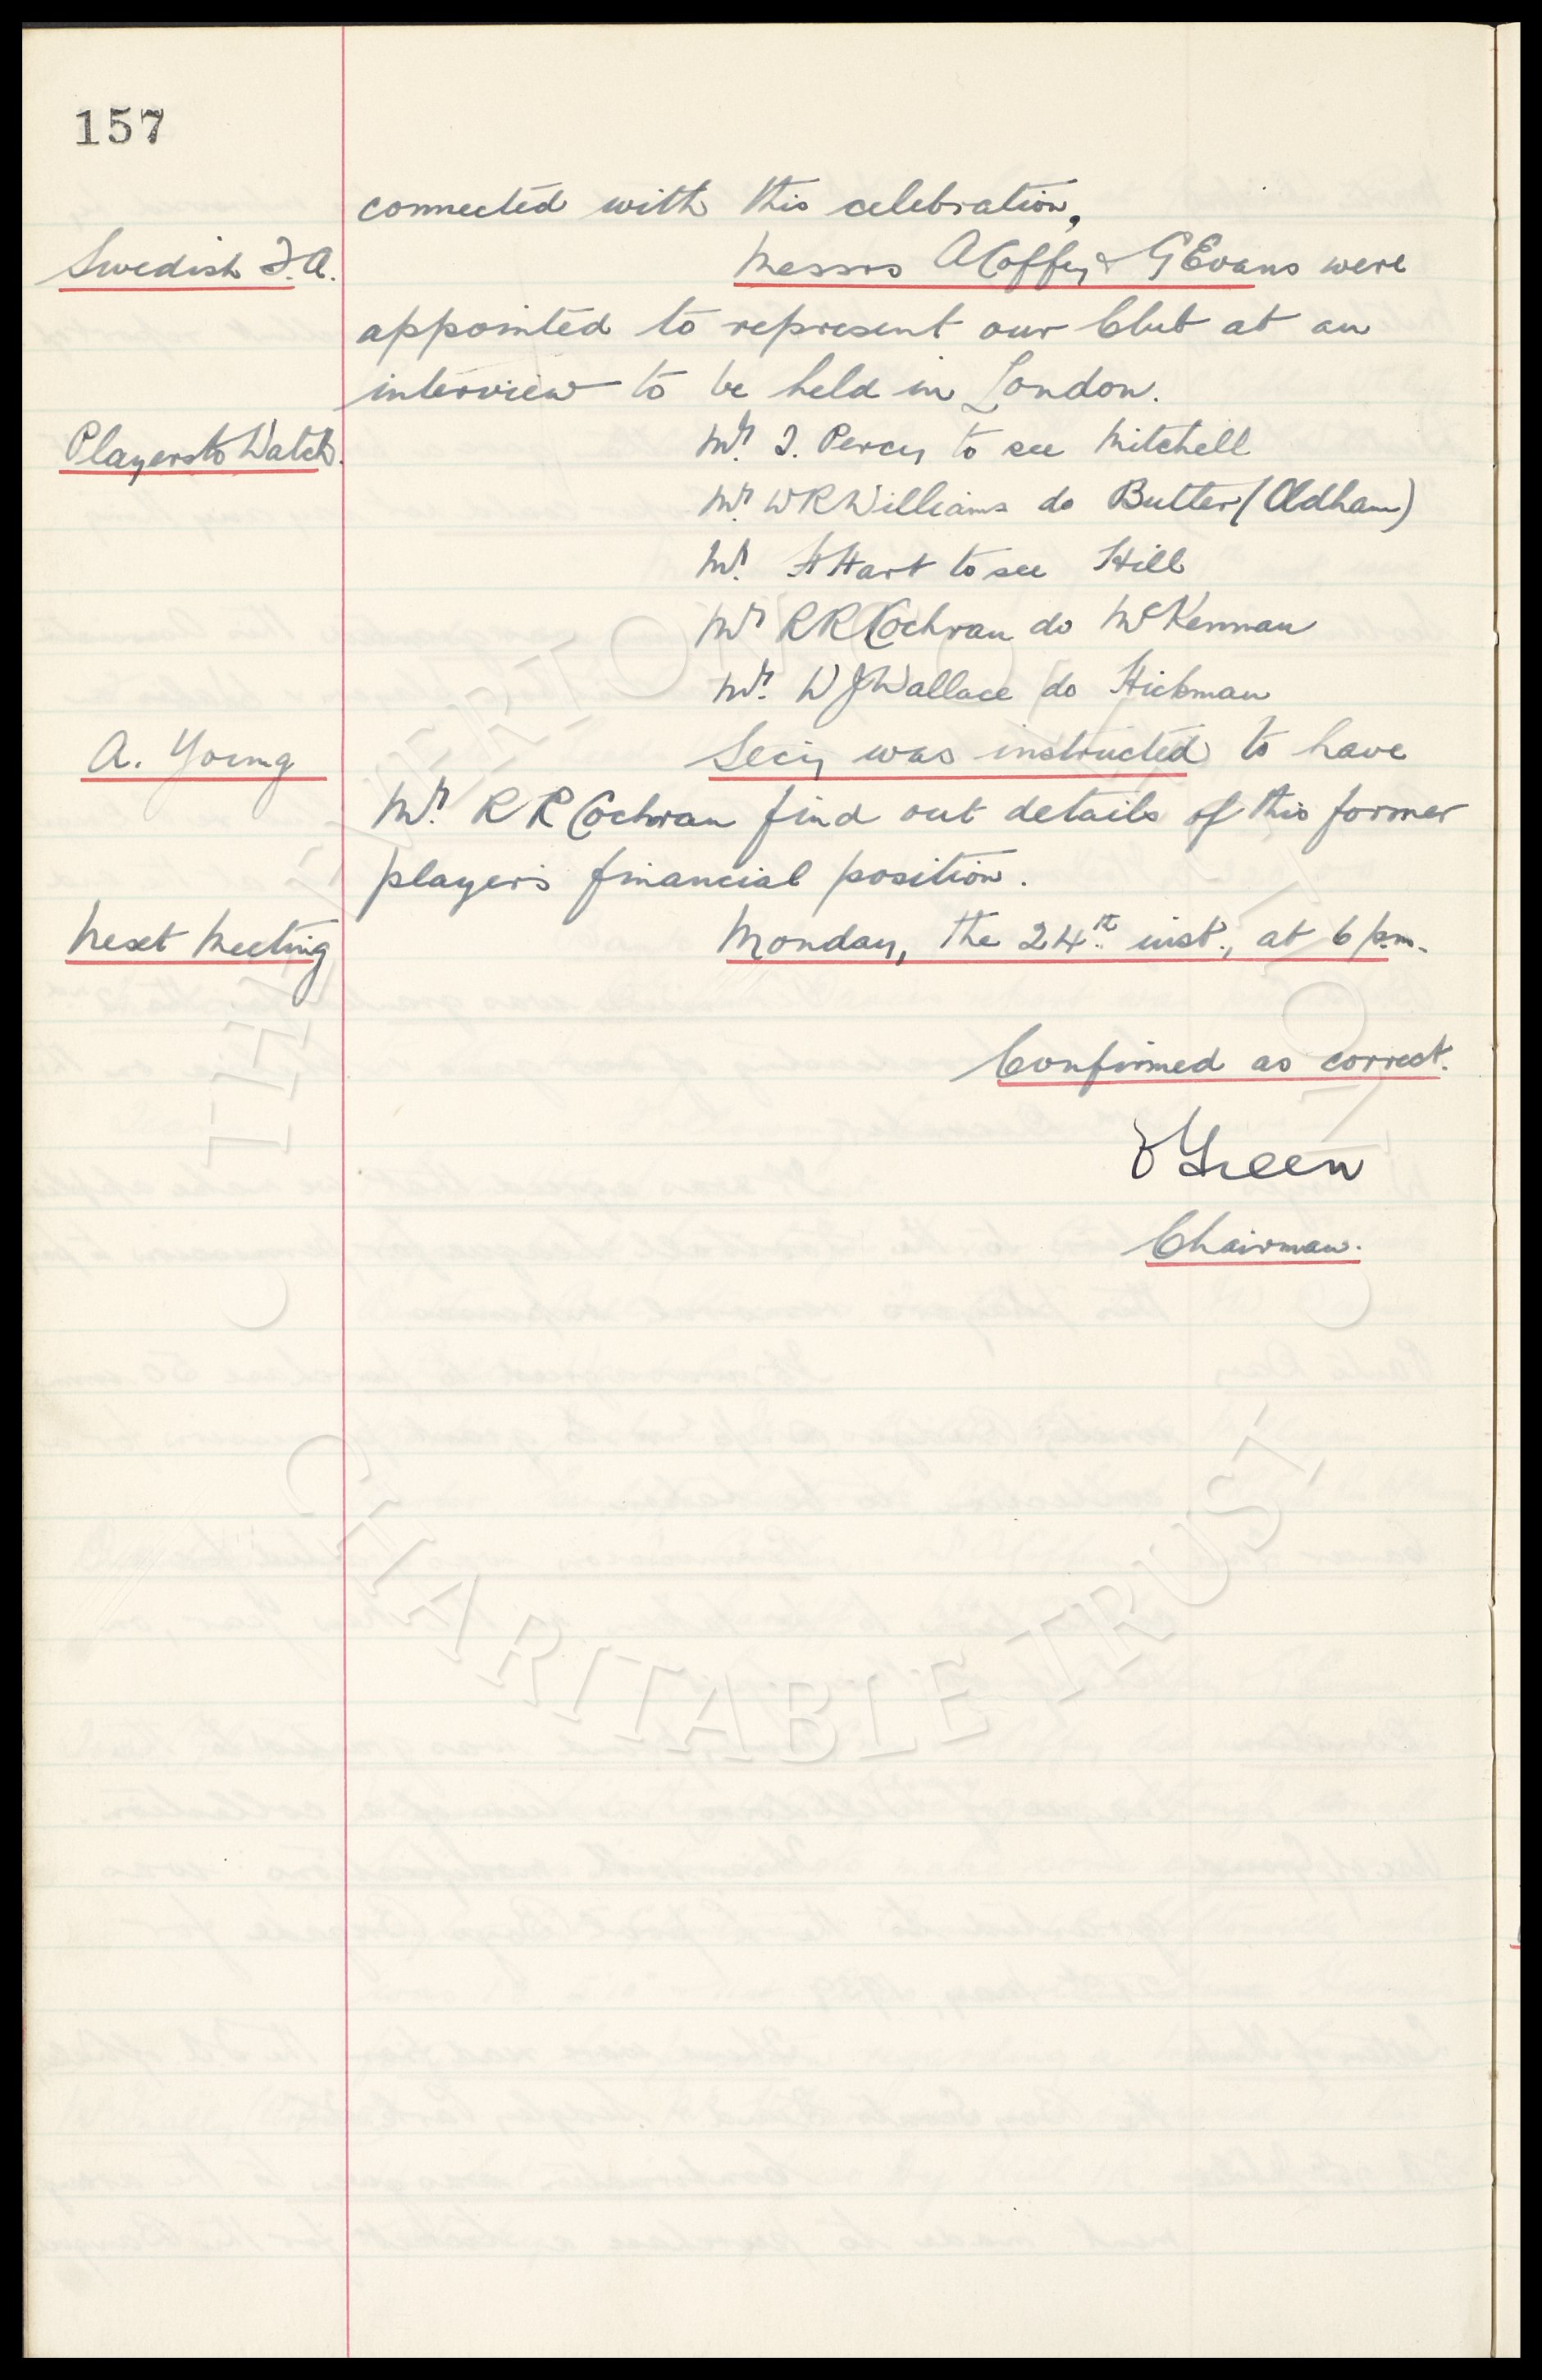 157
connected with this celebration.
Swedish F.A. Messrs A Coffey & G Evans were
appointed to represent our Club at an
interview to be held in London.
Players to Watch. Mr. T. Percy to see Mitchell
Mr. W R Williams do Butter (Oldham)
Mr. H Hart to see Hill
Mr R R Cochran do McKennan
Mr. W J Wallace do Hickman
A. Young Secy was instructed to have
Mr. R R Cochran find out details of this former
player's financial position.
Next Meeting Monday, the 24th. inst., at 6 p.m.
Confirmed as correct.
Green
Chairman.
THE EVERTON COLLECTION
CHARITABLE TRUST